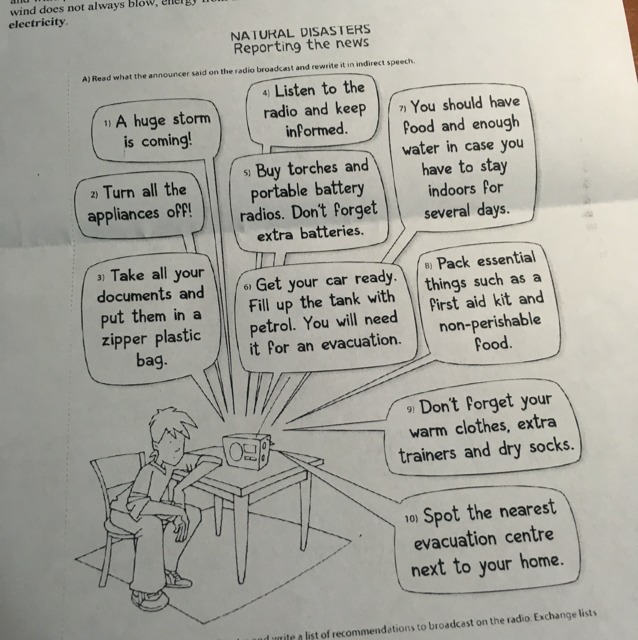 wind does not always blow, energy from
electricity.
NATURAL DISASTERS
Reporting the news
A) Read what the announcer said on the radio broadcast and rewrite it in indirect speech.
1) A huge storm
is coming!
2) Turn all the
appliances off!
3) Take all your
documents and
put them in a
zipper plastic
bag.
4) Listen to the
radio and keep
informed.
5) Buy torches and
portable battery
radios. Don't forget
extra batteries.
6) Get your car ready.
Fill up the tank with
petrol. You will need
it for an evacuation.
7) You should have
food and enough
water in case you
have to stay
indoors for
several days.
8) Pack essential
things such as a
first aid kit and
non-perishable
food.
9) Don't forget your
warm clothes, extra
trainers and dry socks.
10) Spot the nearest
evacuation centre
next to your home.
and write a list of recommendations to broadcast on the radio. Exchange lists